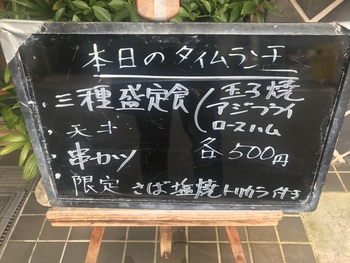 本日のタイムラン王
・三種盛定食(玉子焼
アジフライ
ロースハム
・天丼
・串カツ 各500円
限定 さば塩焼トリカラ付き